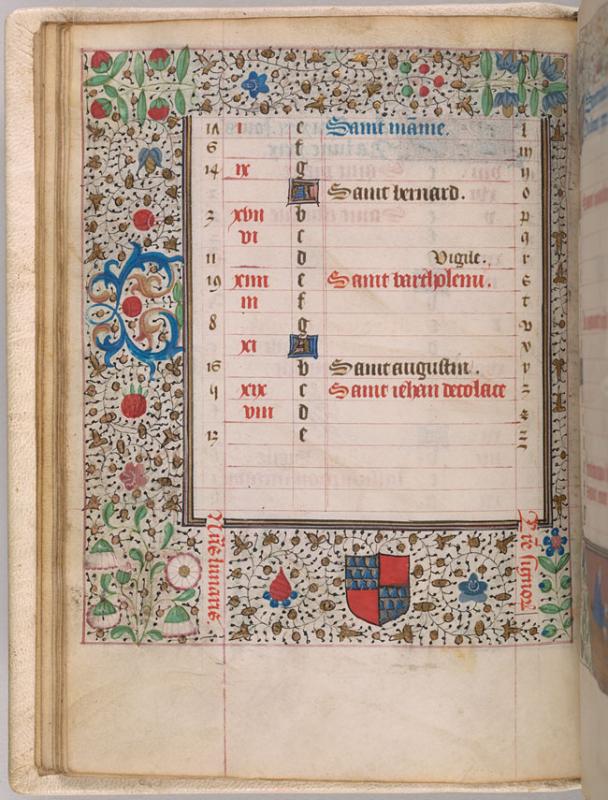 i e Saint mãme. l
6 f m
14 ix g n
A Saint bernard. o
3 xvii b p
vi c q
11 d Vigile. r
19 xiiii e Saint bartholemi. s
iii f t
8 g v
xi A v
16 b Saint augustin. x
xix c Saint iehan decolace z
viii d
12 e